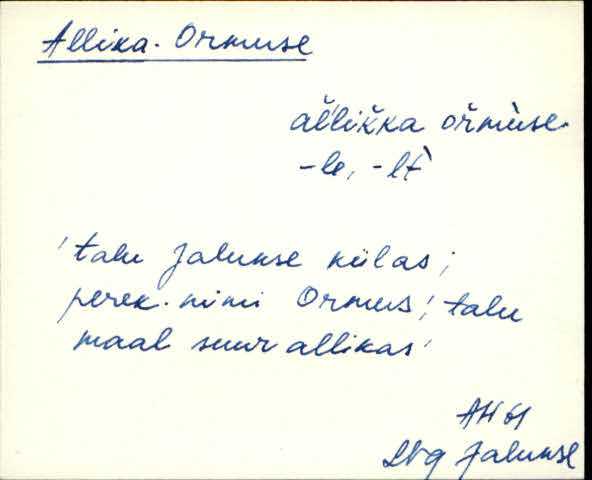 Allika-Ormuse
al̆likka or̆mùse-
-le, -lt̀
'talu Jalukse külas;
perek. nimi Ormus; talu
maal suur allikas'
AH 61
Jalukse